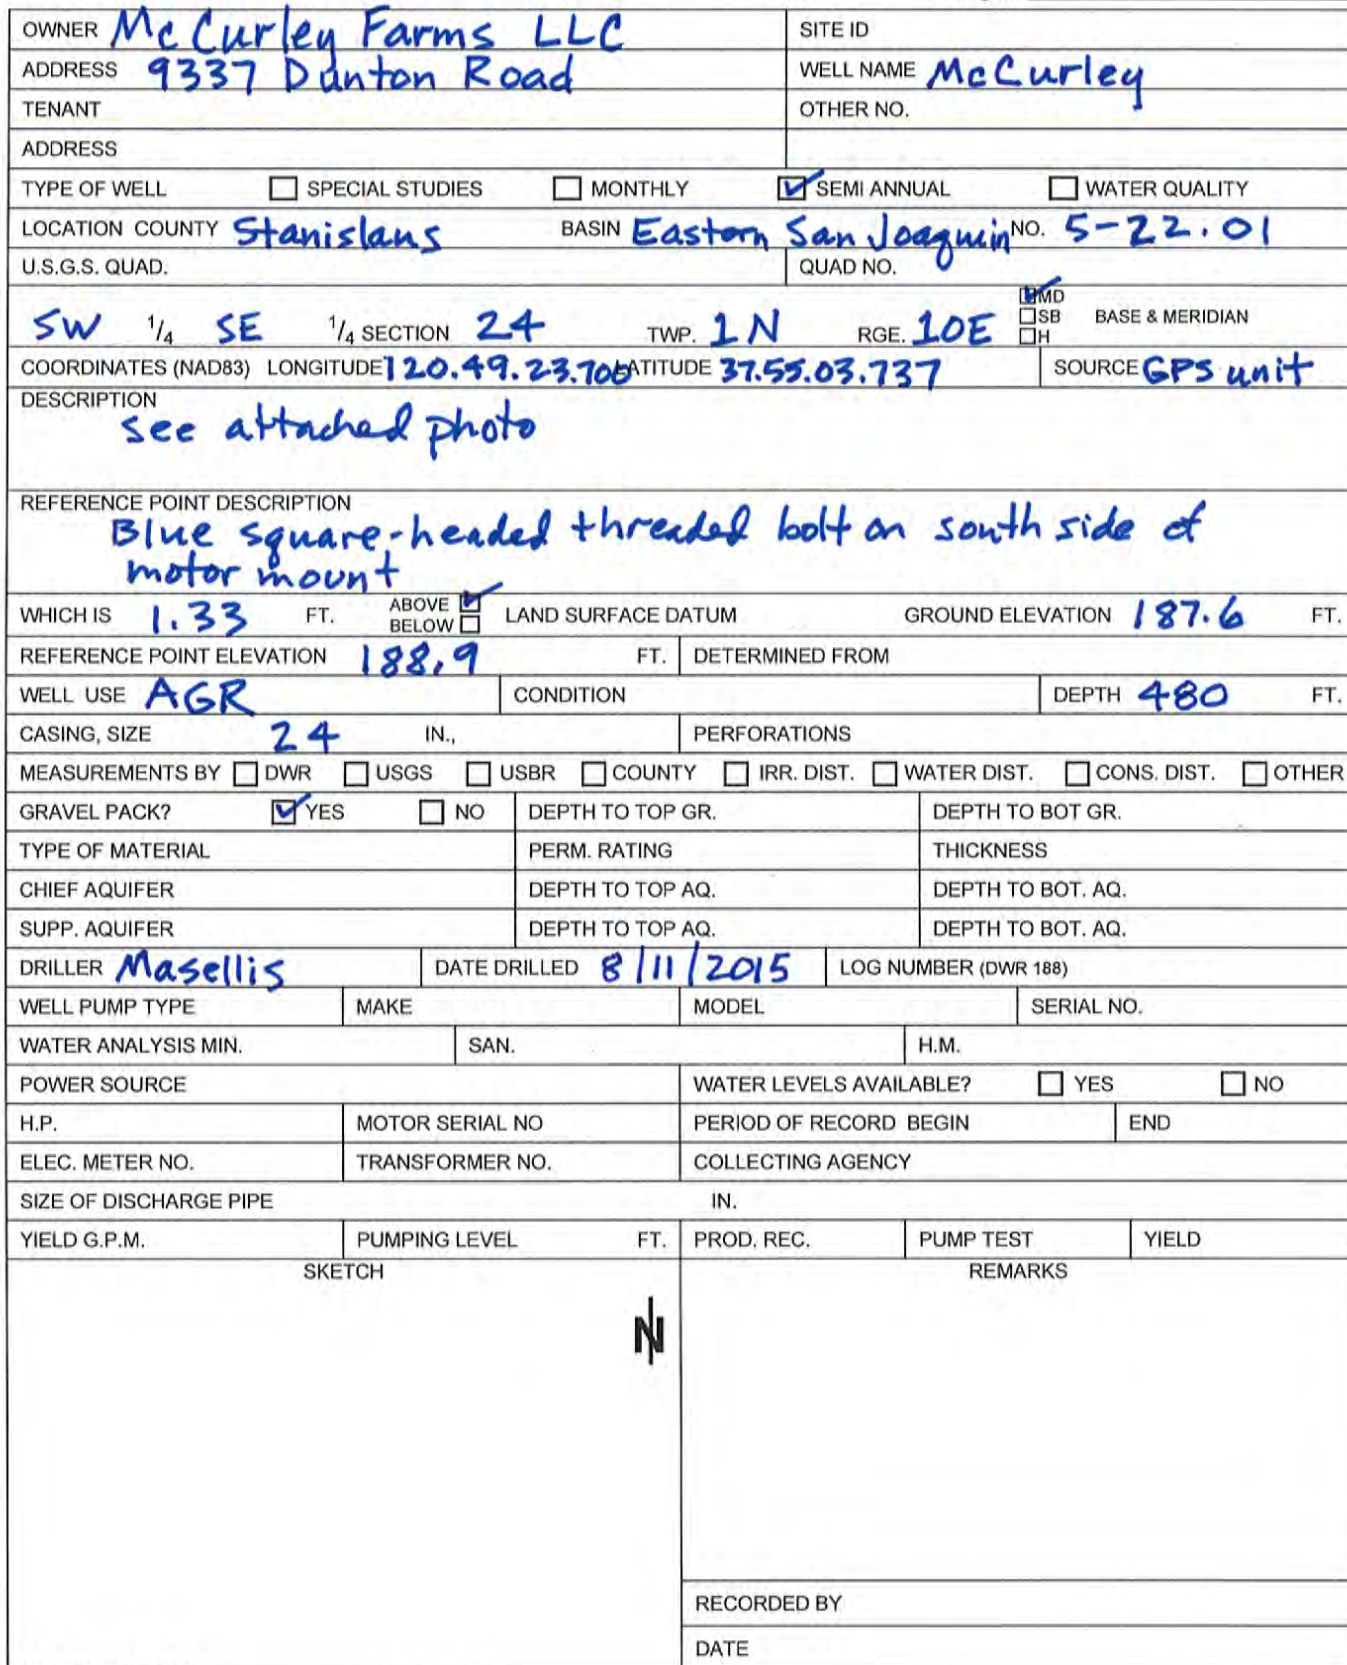 OWNER McCurley Farms LLC SITE ID
ADDRESS 9337 Dunton Road WELL NAME McCurley
TENANT OTHER NO.
ADDRESS
TYPE OF WELL ☐ SPECIAL STUDIES ☐ MONTHLY ☑ SEMI ANNUAL ☐ WATER QUALITY
LOCATION COUNTY Stanislaus BASIN Eastern San Joaquin NO. 5-22.01
U.S.G.S. QUAD. QUAD NO.
SW 1/4 SE 1/4 SECTION 24 TWP. 1N RGE. 10E ☑MD ☐SB ☐H BASE & MERIDIAN
COORDINATES (NAD83) LONGITUDE 120.49.23.700 LATITUDE 37.55.03.737 SOURCE GPS unit
DESCRIPTION
see attached photo
REFERENCE POINT DESCRIPTION
Blue square-headed threaded bolt on south side of
motor mount
WHICH IS 1.33 FT. ABOVE ☑ BELOW ☐ LAND SURFACE DATUM GROUND ELEVATION 187.6 FT.
REFERENCE POINT ELEVATION 188.9 FT. DETERMINED FROM
WELL USE AGR CONDITION DEPTH 480 FT.
CASING, SIZE 24 IN., PERFORATIONS
MEASUREMENTS BY ☐ DWR ☐ USGS ☐ USBR ☐ COUNTY ☐ IRR. DIST. ☐ WATER DIST. ☐ CONS. DIST. ☐ OTHER
GRAVEL PACK? ☑ YES ☐ NO DEPTH TO TOP GR. DEPTH TO BOT GR.
TYPE OF MATERIAL PERM. RATING THICKNESS
CHIEF AQUIFER DEPTH TO TOP AQ. DEPTH TO BOT. AQ.
SUPP. AQUIFER DEPTH TO TOP AQ. DEPTH TO BOT. AQ.
DRILLER Masellis DATE DRILLED 8/11/2015 LOG NUMBER (DWR 188)
WELL PUMP TYPE MAKE MODEL SERIAL NO.
WATER ANALYSIS MIN. SAN. H.M.
POWER SOURCE WATER LEVELS AVAILABLE? ☐ YES ☐ NO
H.P. MOTOR SERIAL NO PERIOD OF RECORD BEGIN END
ELEC. METER NO. TRANSFORMER NO. COLLECTING AGENCY
SIZE OF DISCHARGE PIPE IN.
YIELD G.P.M. PUMPING LEVEL FT. PROD. REC. PUMP TEST YIELD
SKETCH REMARKS
N
RECORDED BY
DATE